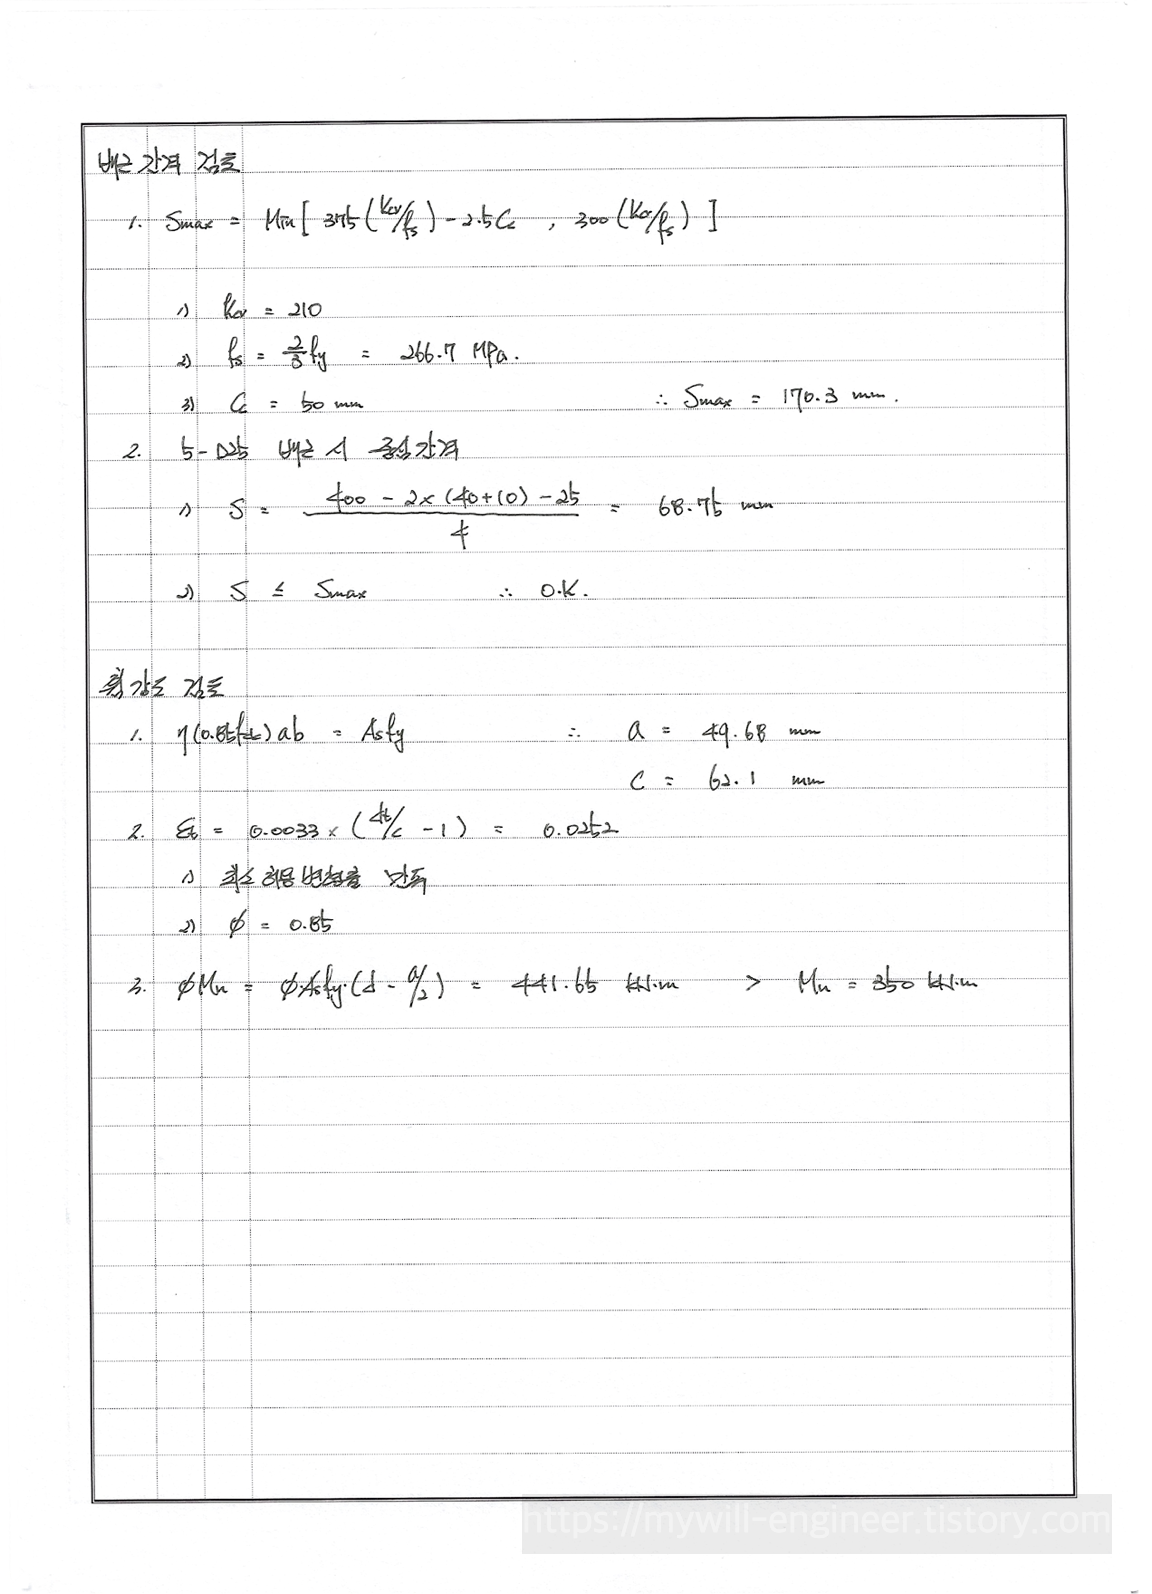 배근 간격 검토
1. Smax = Min[ 375(kcr/fs) - 2.5Cc , 300(kcr/fs) ]
1) kcr = 210
2) fs = 2/3 fy = 266.7 MPa.
3) Cc = 50 mm ∴ Smax = 170.3 mm.
2. 5-D25 배근 시 중심간격
1) S = (400 - 2×(40+10) - 25) / 4 = 68.75 mm
2) S ≤ Smax ∴ O.K.
휨강도 검토
1. η(0.85fck)ab = Asfy ∴ a = 49.68 mm
C = 62.1 mm
2. εt = 0.0033 × (dt/c - 1) = 0.0252
1) 최소 허용변형률 만족
2) φ = 0.85
3. φMn = φ·Asfy·(d - a/2) = 441.65 kN·m > Mu = 350 kN·m
https://mywill-engineer.tistory.com